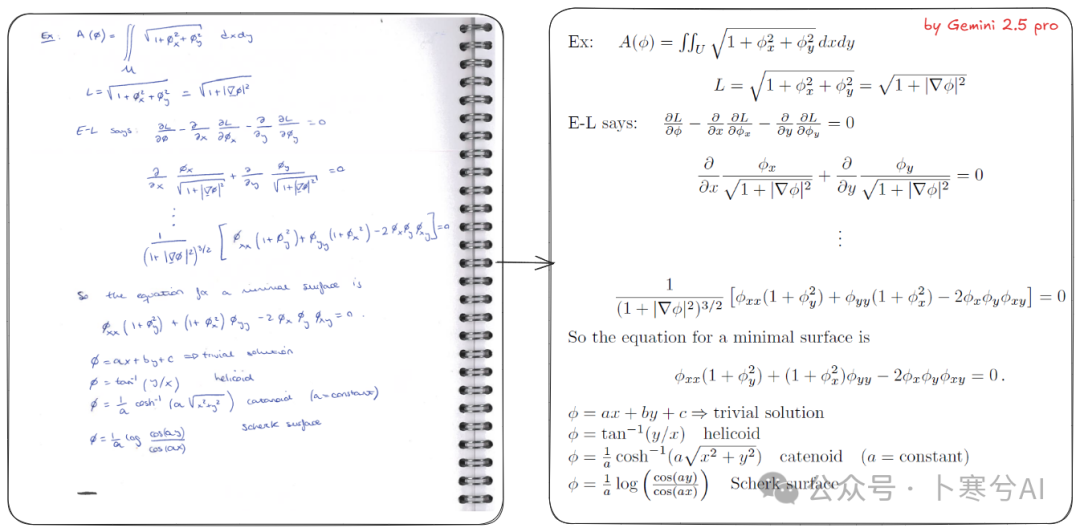 Ex: A(φ) = ∬_U √(1+φ_x²+φ_y²) dxdy
L = √(1+φ_x²+φ_y²) = √(1+|∇φ|²)
E-L says: ∂L/∂φ - ∂/∂x ∂L/∂φ_x - ∂/∂y ∂L/∂φ_y = 0
∂/∂x φ_x/√(1+|∇φ|²) + ∂/∂y φ_y/√(1+|∇φ|²) = 0
⋮
1/(1+|∇φ|²)^{3/2} [φ_xx(1+φ_y²)+φ_yy(1+φ_x²)-2φ_xφ_yφ_xy] = 0
So the equation for a minimal surface is
φ_xx(1+φ_y²) + (1+φ_x²)φ_yy - 2φ_xφ_yφ_xy = 0.
φ = ax+by+c ⇒ trivial solution
φ = tan⁻¹(y/x) helicoid
φ = 1/a cosh⁻¹(a√(x²+y²)) catenoid (a=constant)
φ = 1/a log cos(ay)/cos(ax) Scherk surface
by Gemini 2.5 pro
Ex: A(φ) = ∬_U √(1+φ_x²+φ_y²) dxdy
L = √(1+φ_x²+φ_y²) = √(1+|∇φ|²)
E-L says: ∂L/∂φ − ∂/∂x ∂L/∂φ_x − ∂/∂y ∂L/∂φ_y = 0
∂/∂x φ_x/√(1+|∇φ|²) + ∂/∂y φ_y/√(1+|∇φ|²) = 0
⋮
1/(1+|∇φ|²)^{3/2} [φ_xx(1+φ_y²) + φ_yy(1+φ_x²) − 2φ_xφ_yφ_xy] = 0
So the equation for a minimal surface is
φ_xx(1+φ_y²) + (1+φ_x²)φ_yy − 2φ_xφ_yφ_xy = 0.
φ = ax + by + c ⇒ trivial solution
φ = tan⁻¹(y/x) helicoid
φ = 1/a cosh⁻¹(a√(x²+y²)) catenoid (a = constant)
φ = 1/a log(cos(ay)/cos(ax)) Scherk surface
公众号 · 卜寒兮AI